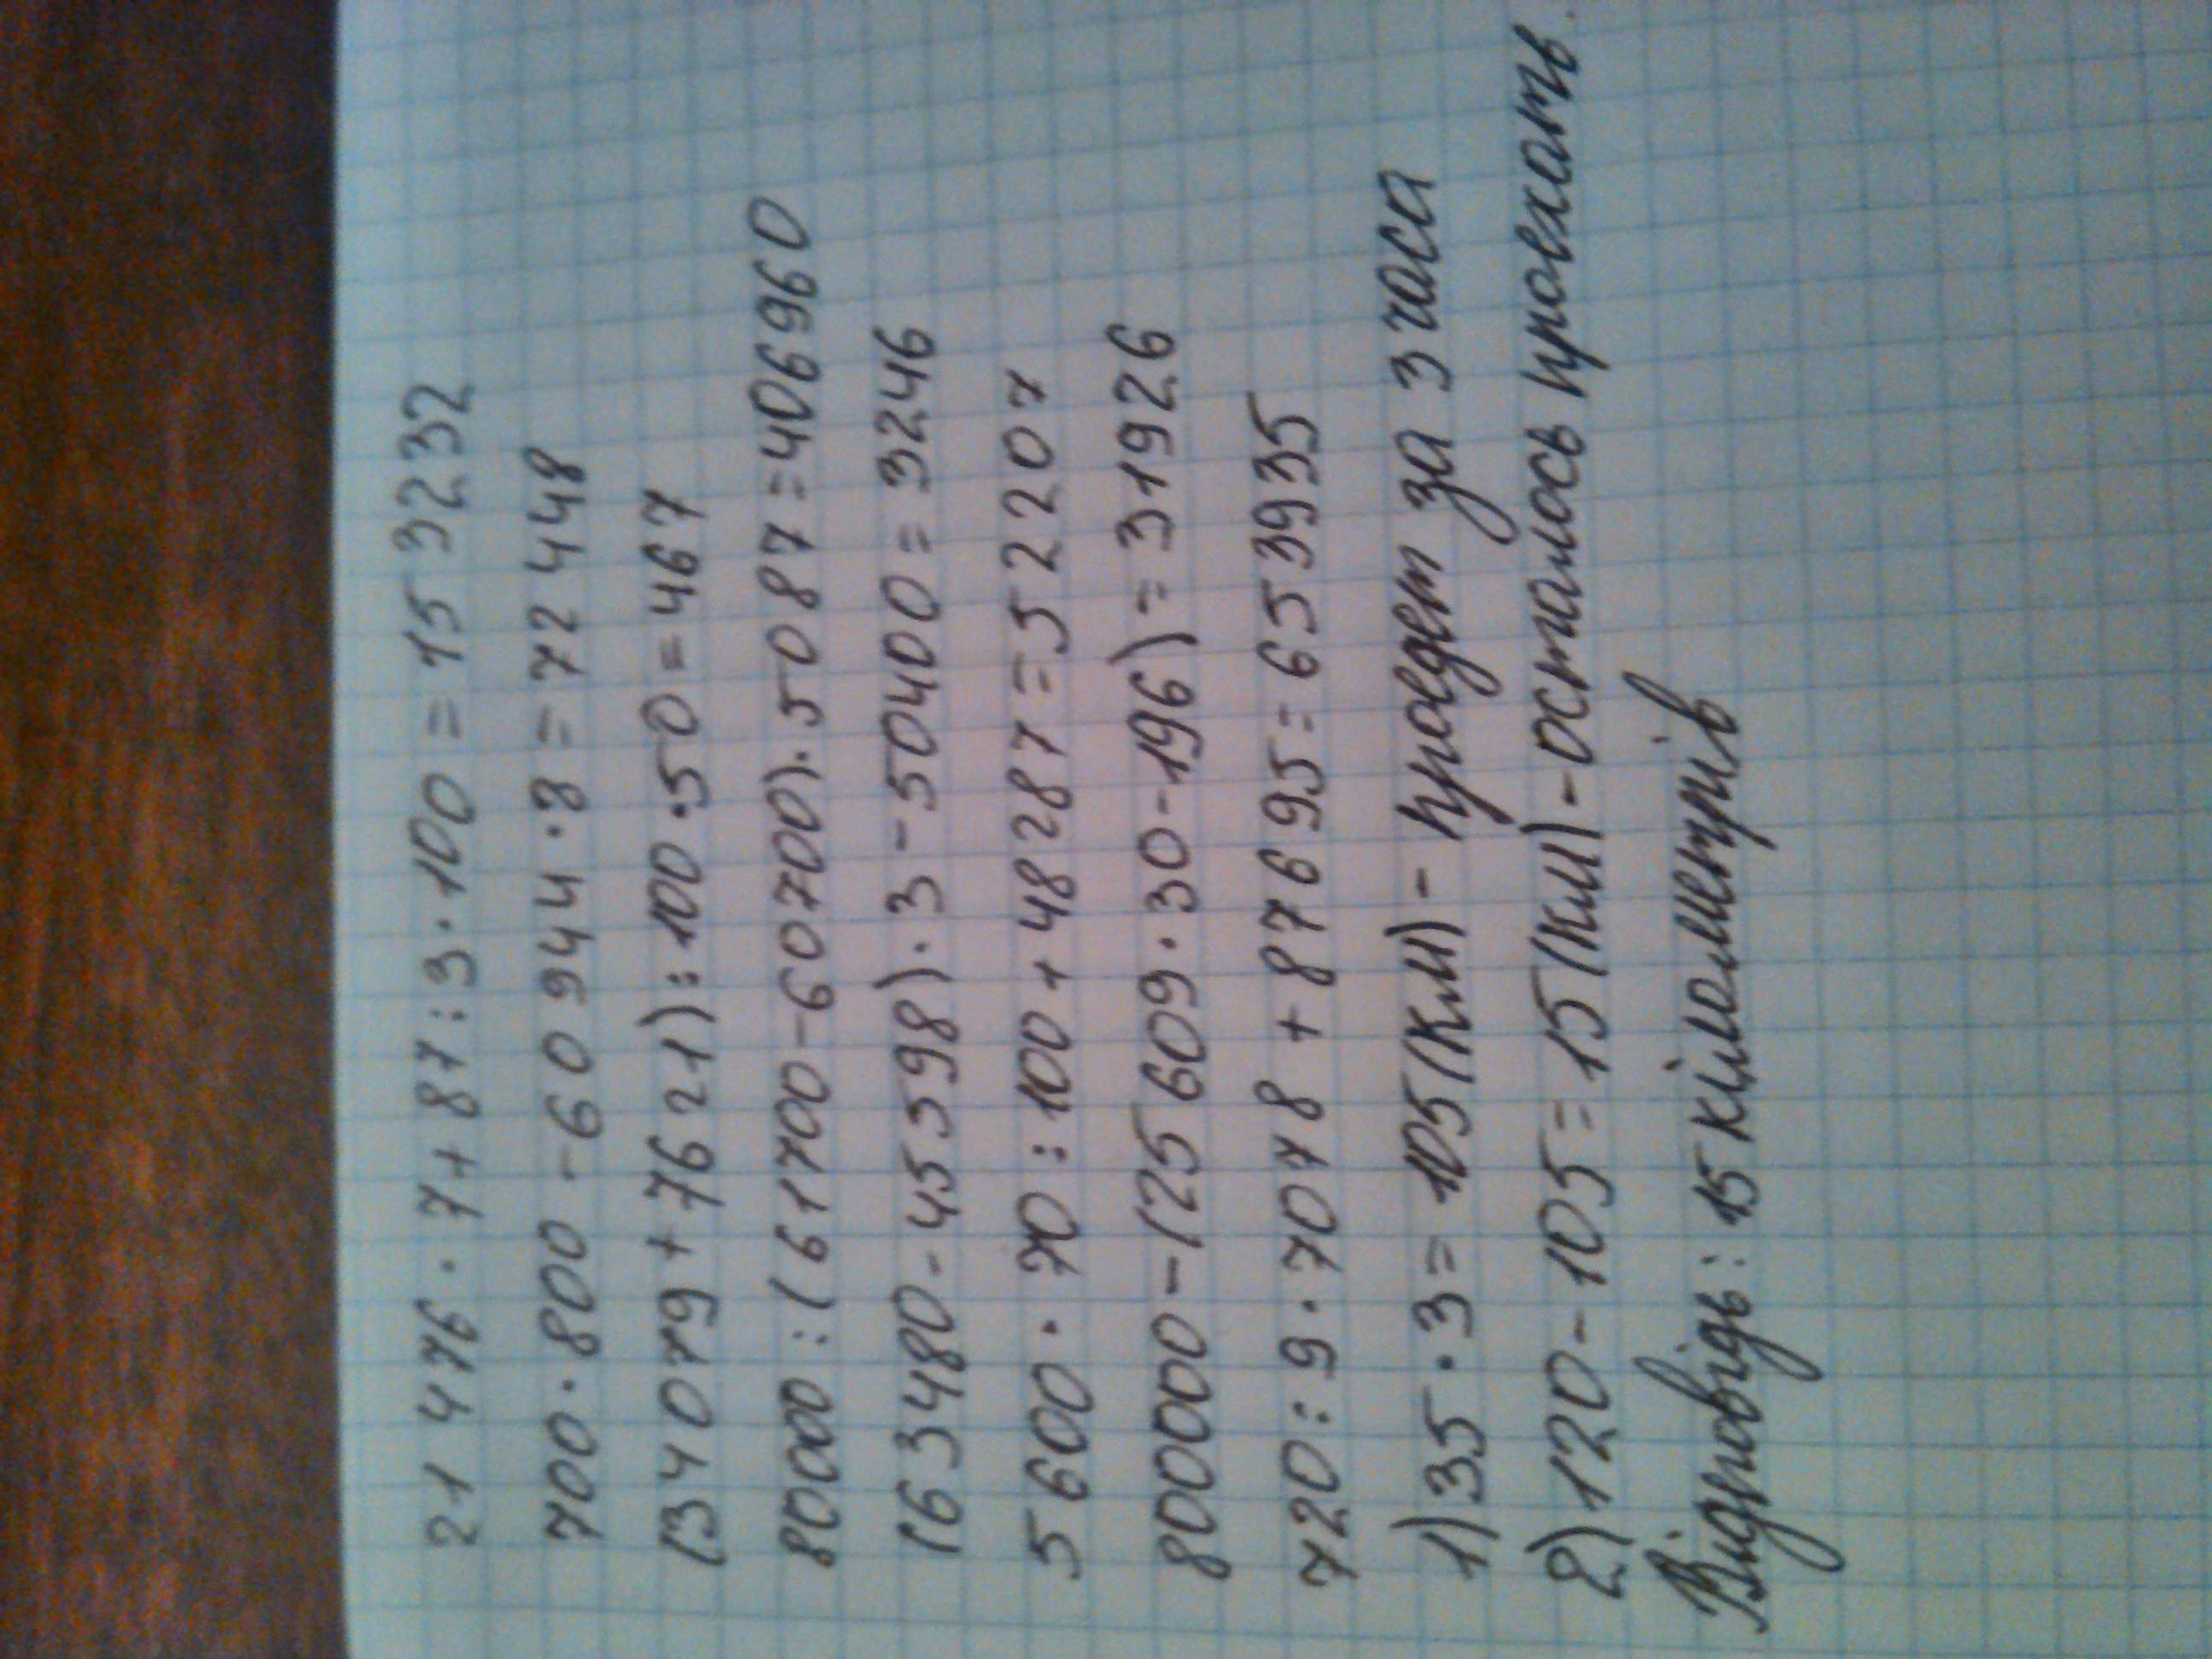 21 476 · 7 + 87 : 3 · 10 = 15 3232
700 · 800 - 60 944 · 8 = 72 448
(34 079 + 7621) : 100 · 50 = 467
80000 : (61700 - 60700) · 5087 = 406960
(63480 - 45598) · 3 - 50400 = 3246
5600 · 70 : 100 + 48287 = 52207
800000 - (25609 · 30 - 196) = 31926
720 : 9 · 7078 + 87695 = 653935
1) 35 · 3 = 105 (км) - проедет за 3 часа
2) 120 - 105 = 15 (км) - осталось проехать.
Відповідь : 15 кілометрів